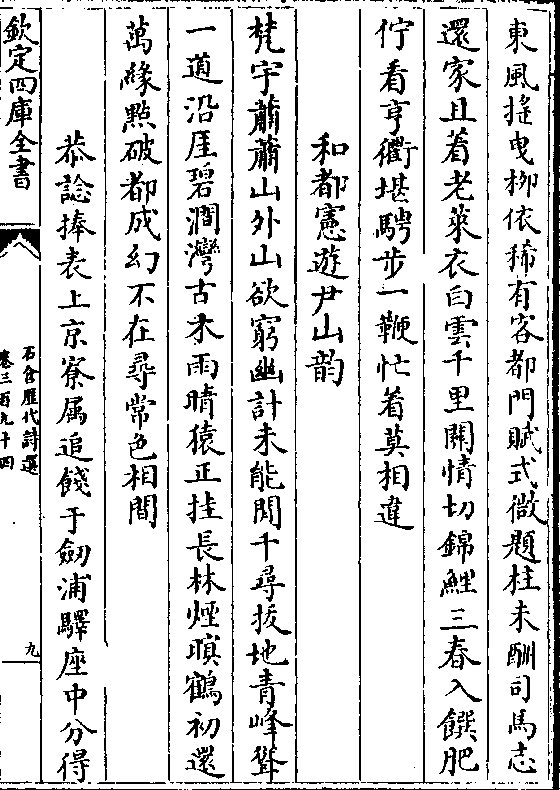 東風揺曳栁依稀有客都門賦式微題柱未酬司馬志
還家且着老萊衣白雲千里關情切錦鯉三春入饌肥
佇看亨衢堪騁步一鞭忙着莫相違
和都憲遊尹山韵
梵宇蕭蕭山外山欲窮幽計未能閒千尋拔地青峰聳
一道沿厓碧澗灣古木雨晴猿正挂長林煙暝鶴初還
萬緣㸃破都成幻不在尋常色相間
恭諗捧表上京寮属追餞于劒浦驛座中分得
欽定四庫全書
石倉歷代詩選
卷三百九十四
九